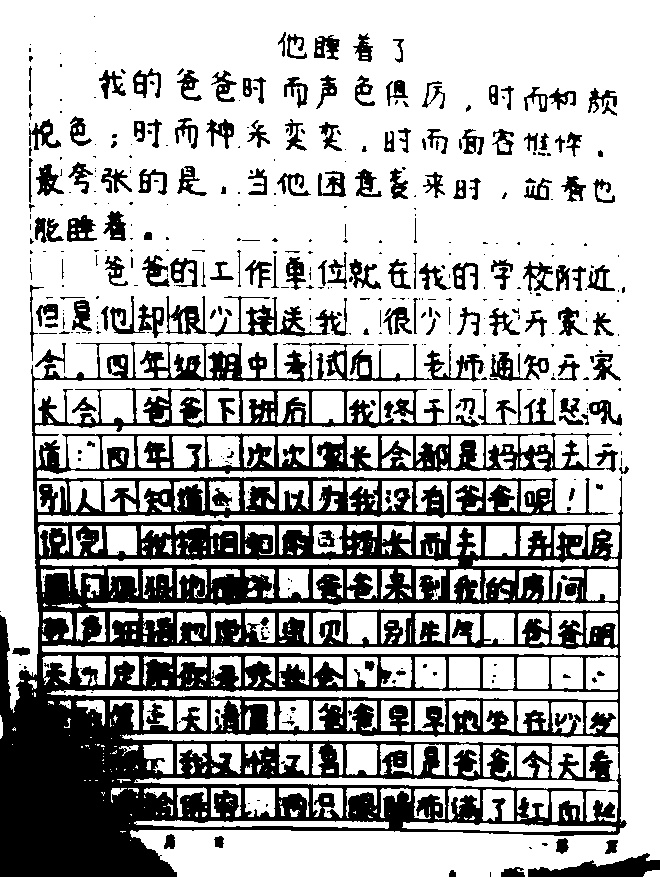 他睡着了
我的爸爸时而声色俱厉，时而和颜
悦色；时而神采奕奕，时而面容憔悴。
最夸张的是，当他困意袭来时，站着也
能睡着。
爸爸的工作单位就在我的学校附近，
但是他却很少接送我，很少为我开家长
会。四年级期中考试后，老师通知开家
长会，爸爸下班后，我终于忍不住怒吼
道：“四年了，次次家长会都是妈妈去开，
别人不知道，还以为我没有爸爸呢！”
说完，我 长而去，并把房
门狠狠地 。爸爸来到我的房间，
轻声细语地说：宝贝，别生气，爸爸明
天一定帮你 家长会
天清晨，爸爸早早地坐在沙发
我又惊又喜。但是爸爸今天看
两只眼睛布满了红血丝
月 日 第 页